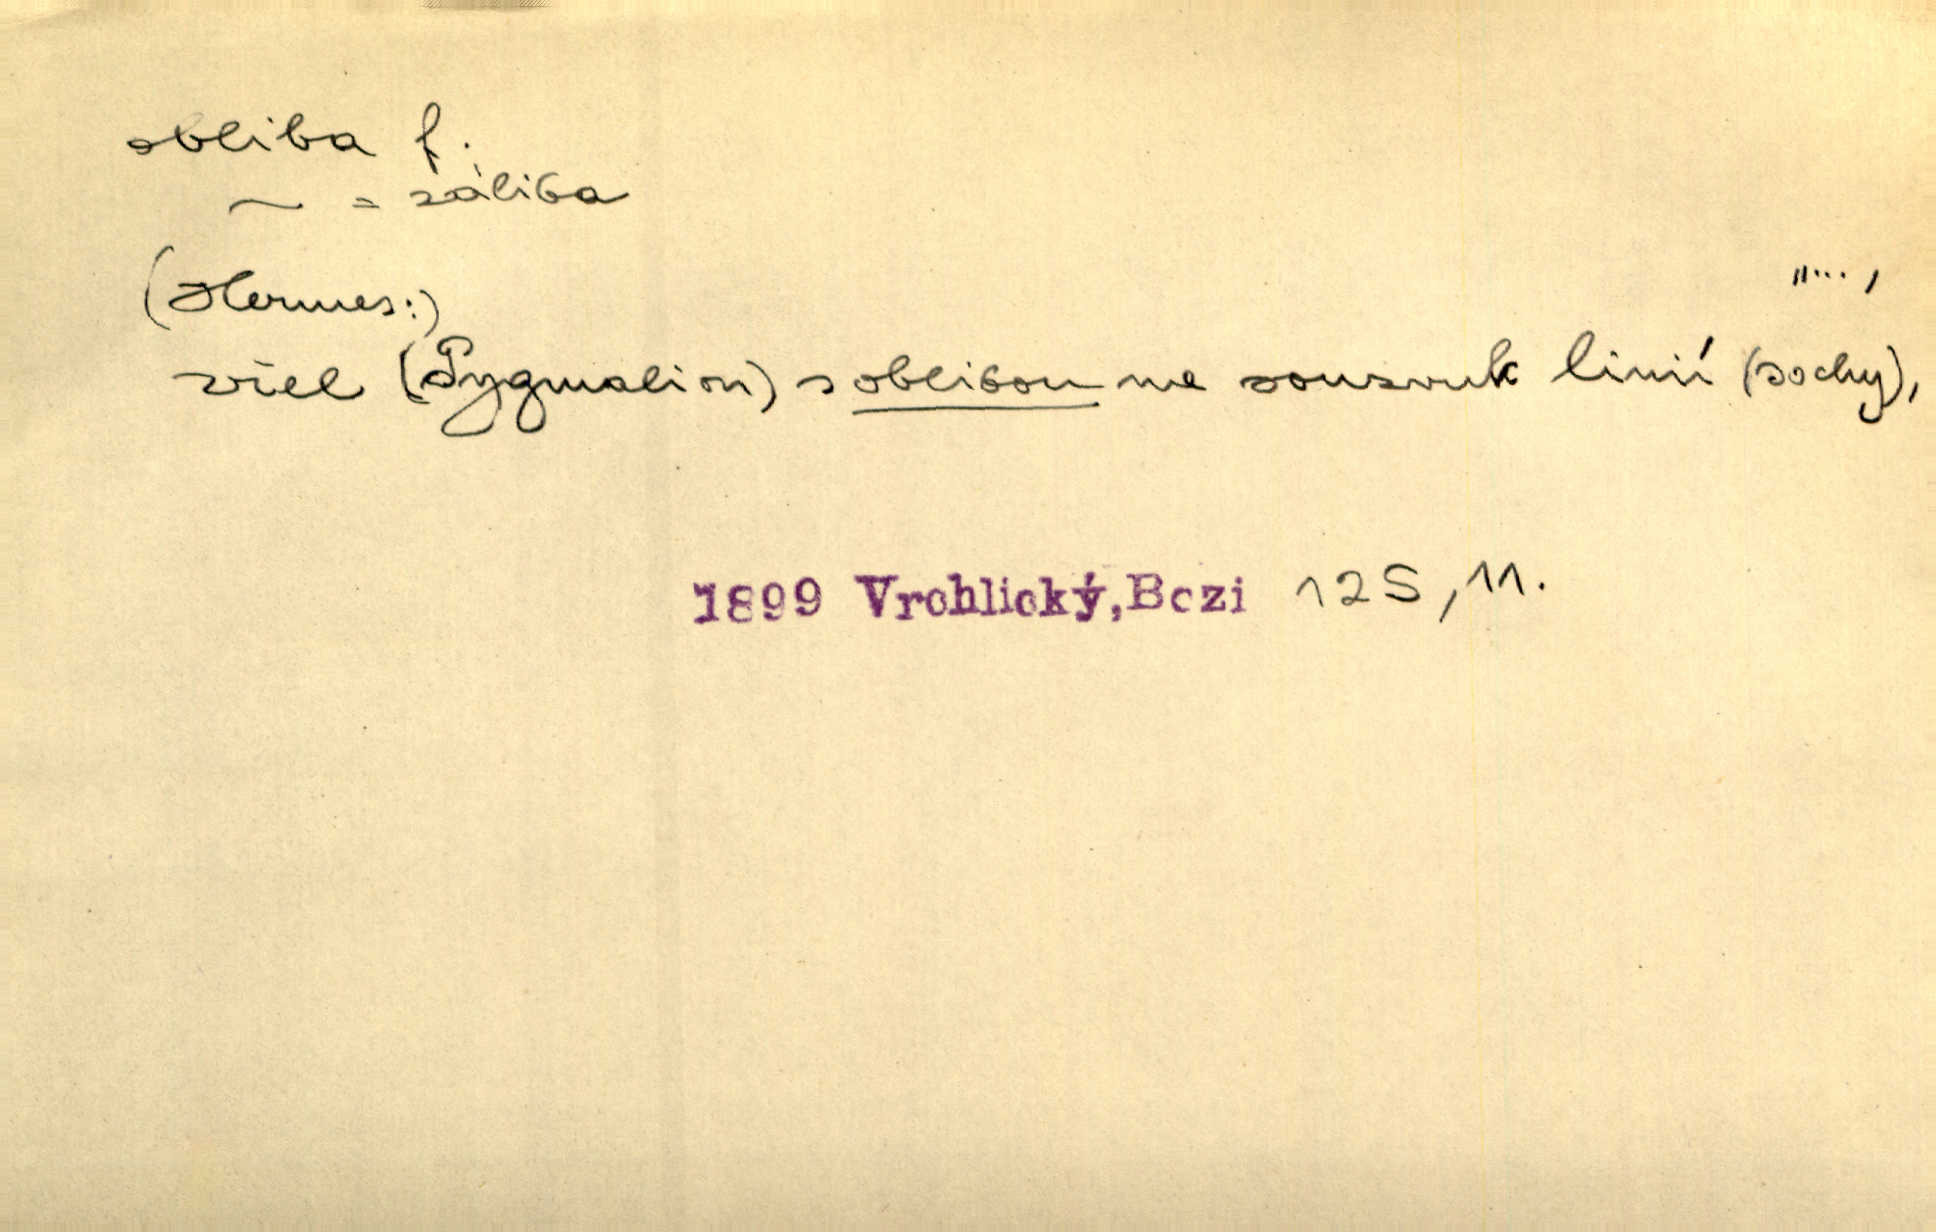 obliba f.
~ = záliba
(Hermes:)
"... ,
zřel (Pygmalion) s oblibou na souzvuk linií (sochy),
1899 Vrchlický, Bozi 125, 11.